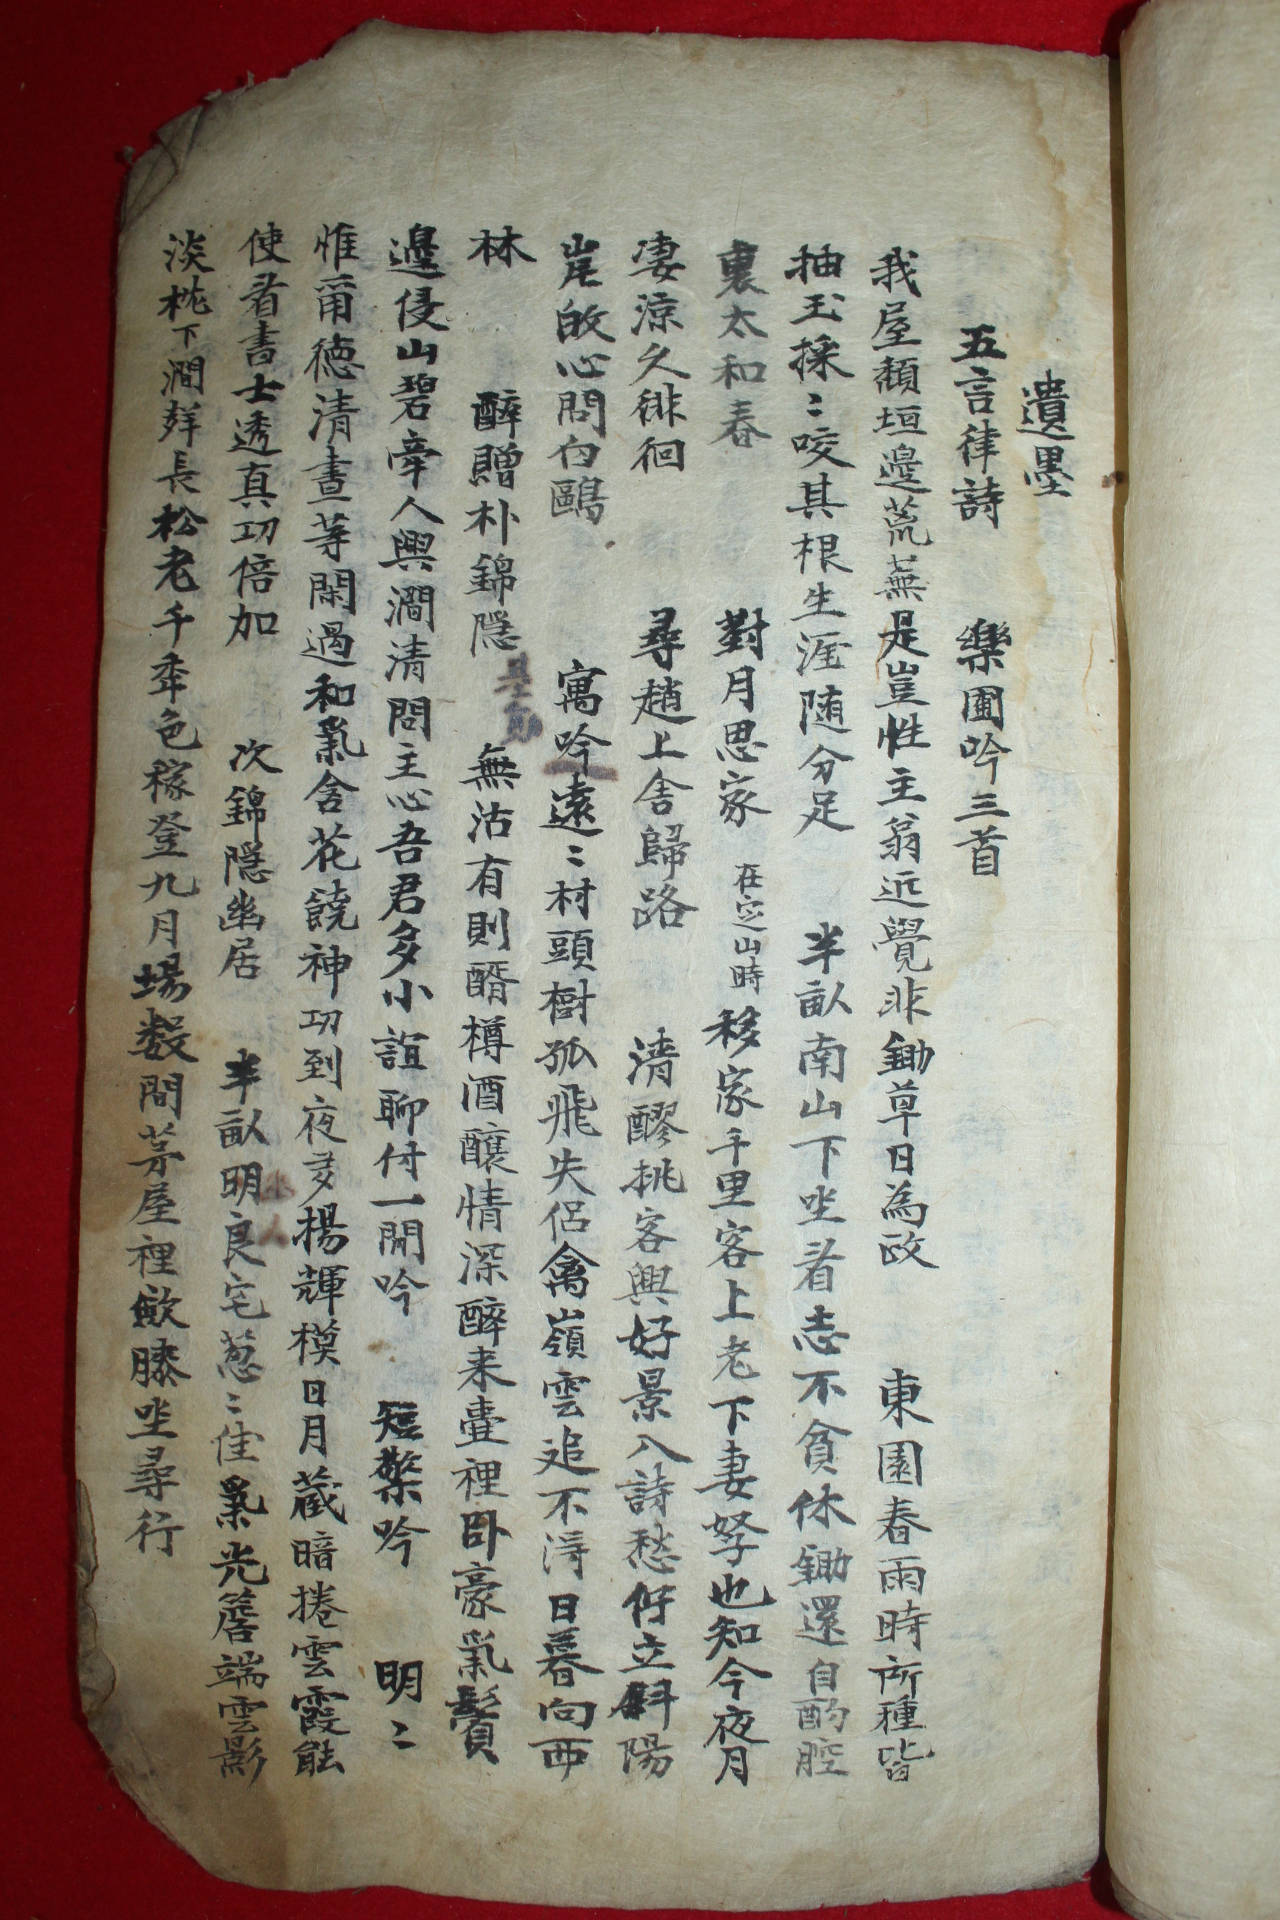 遺墨
五言律詩 樂圃吟三首
我屋頹垣邊荒蕪是豈性主翁近覺非鋤草日為政 東園春雨時所種皆
抽玉採〻咬其根生涯随分足 半畝南山下坐看志不貪休鋤還自酌腔
裏太和春 對月思家 在定山時 移家千里客上老下妻孥也知今夜月
凄涼久徘徊 尋趙上舍歸路 清醪挑客興好景入詩愁佇立斜陽
岸皎心問白鷗 寓吟遠〻村頭樹孤飛失侶禽嶺雲追不淂日暮向西
林 醉贈朴錦隱 無沽有則醑樽酒釀情深醉来壷裡卧豪氣鬢
邉侵山碧牽人興澗清問主心吾君多小誼聊付一閒吟 短檠吟 明〻
惟甭徳清晝等閑過和氣含花饒神功到夜多揚輝模日月蔵暗捲雲霞能
使看書士透真功倍加 次錦隱幽居 半畝明良宅葱〻佳氣光簷端雲影
淡枕下澗鉾長松老千秊色稼登九月場数間茅屋裡歛膝坐尋行